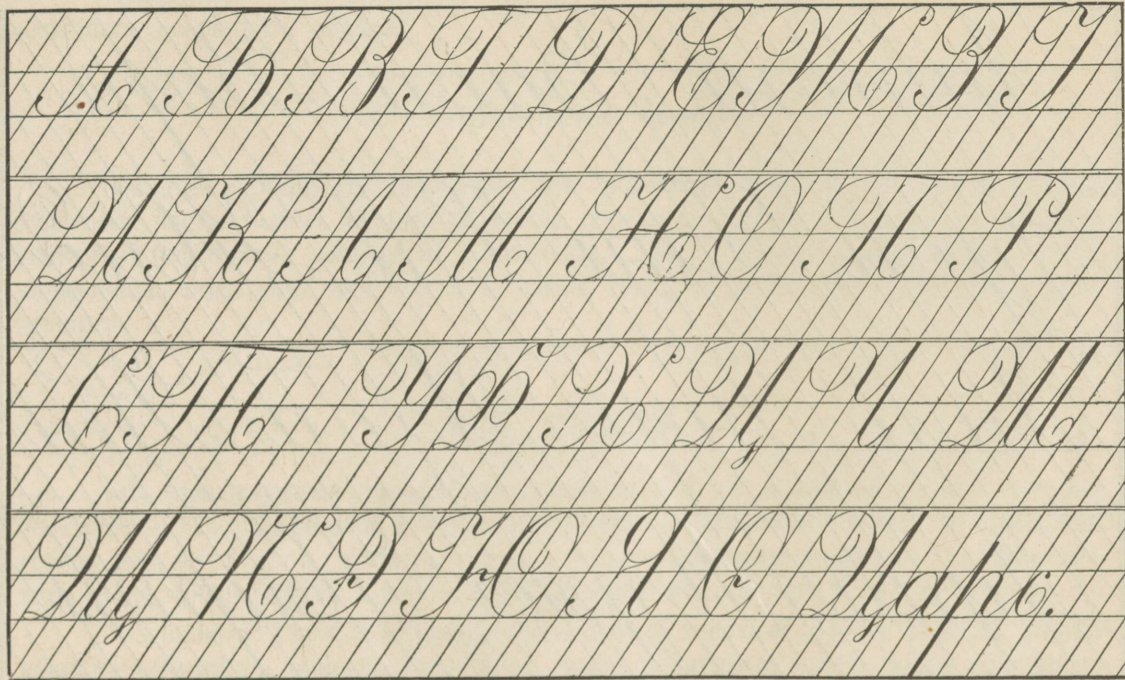 А Б В Г Д Е Ж З І
И К Л М Н О П Р
С Т У Ф Х Ц Ч Ш
Щ Ѣ Э Ю Я Ѳ Царс.